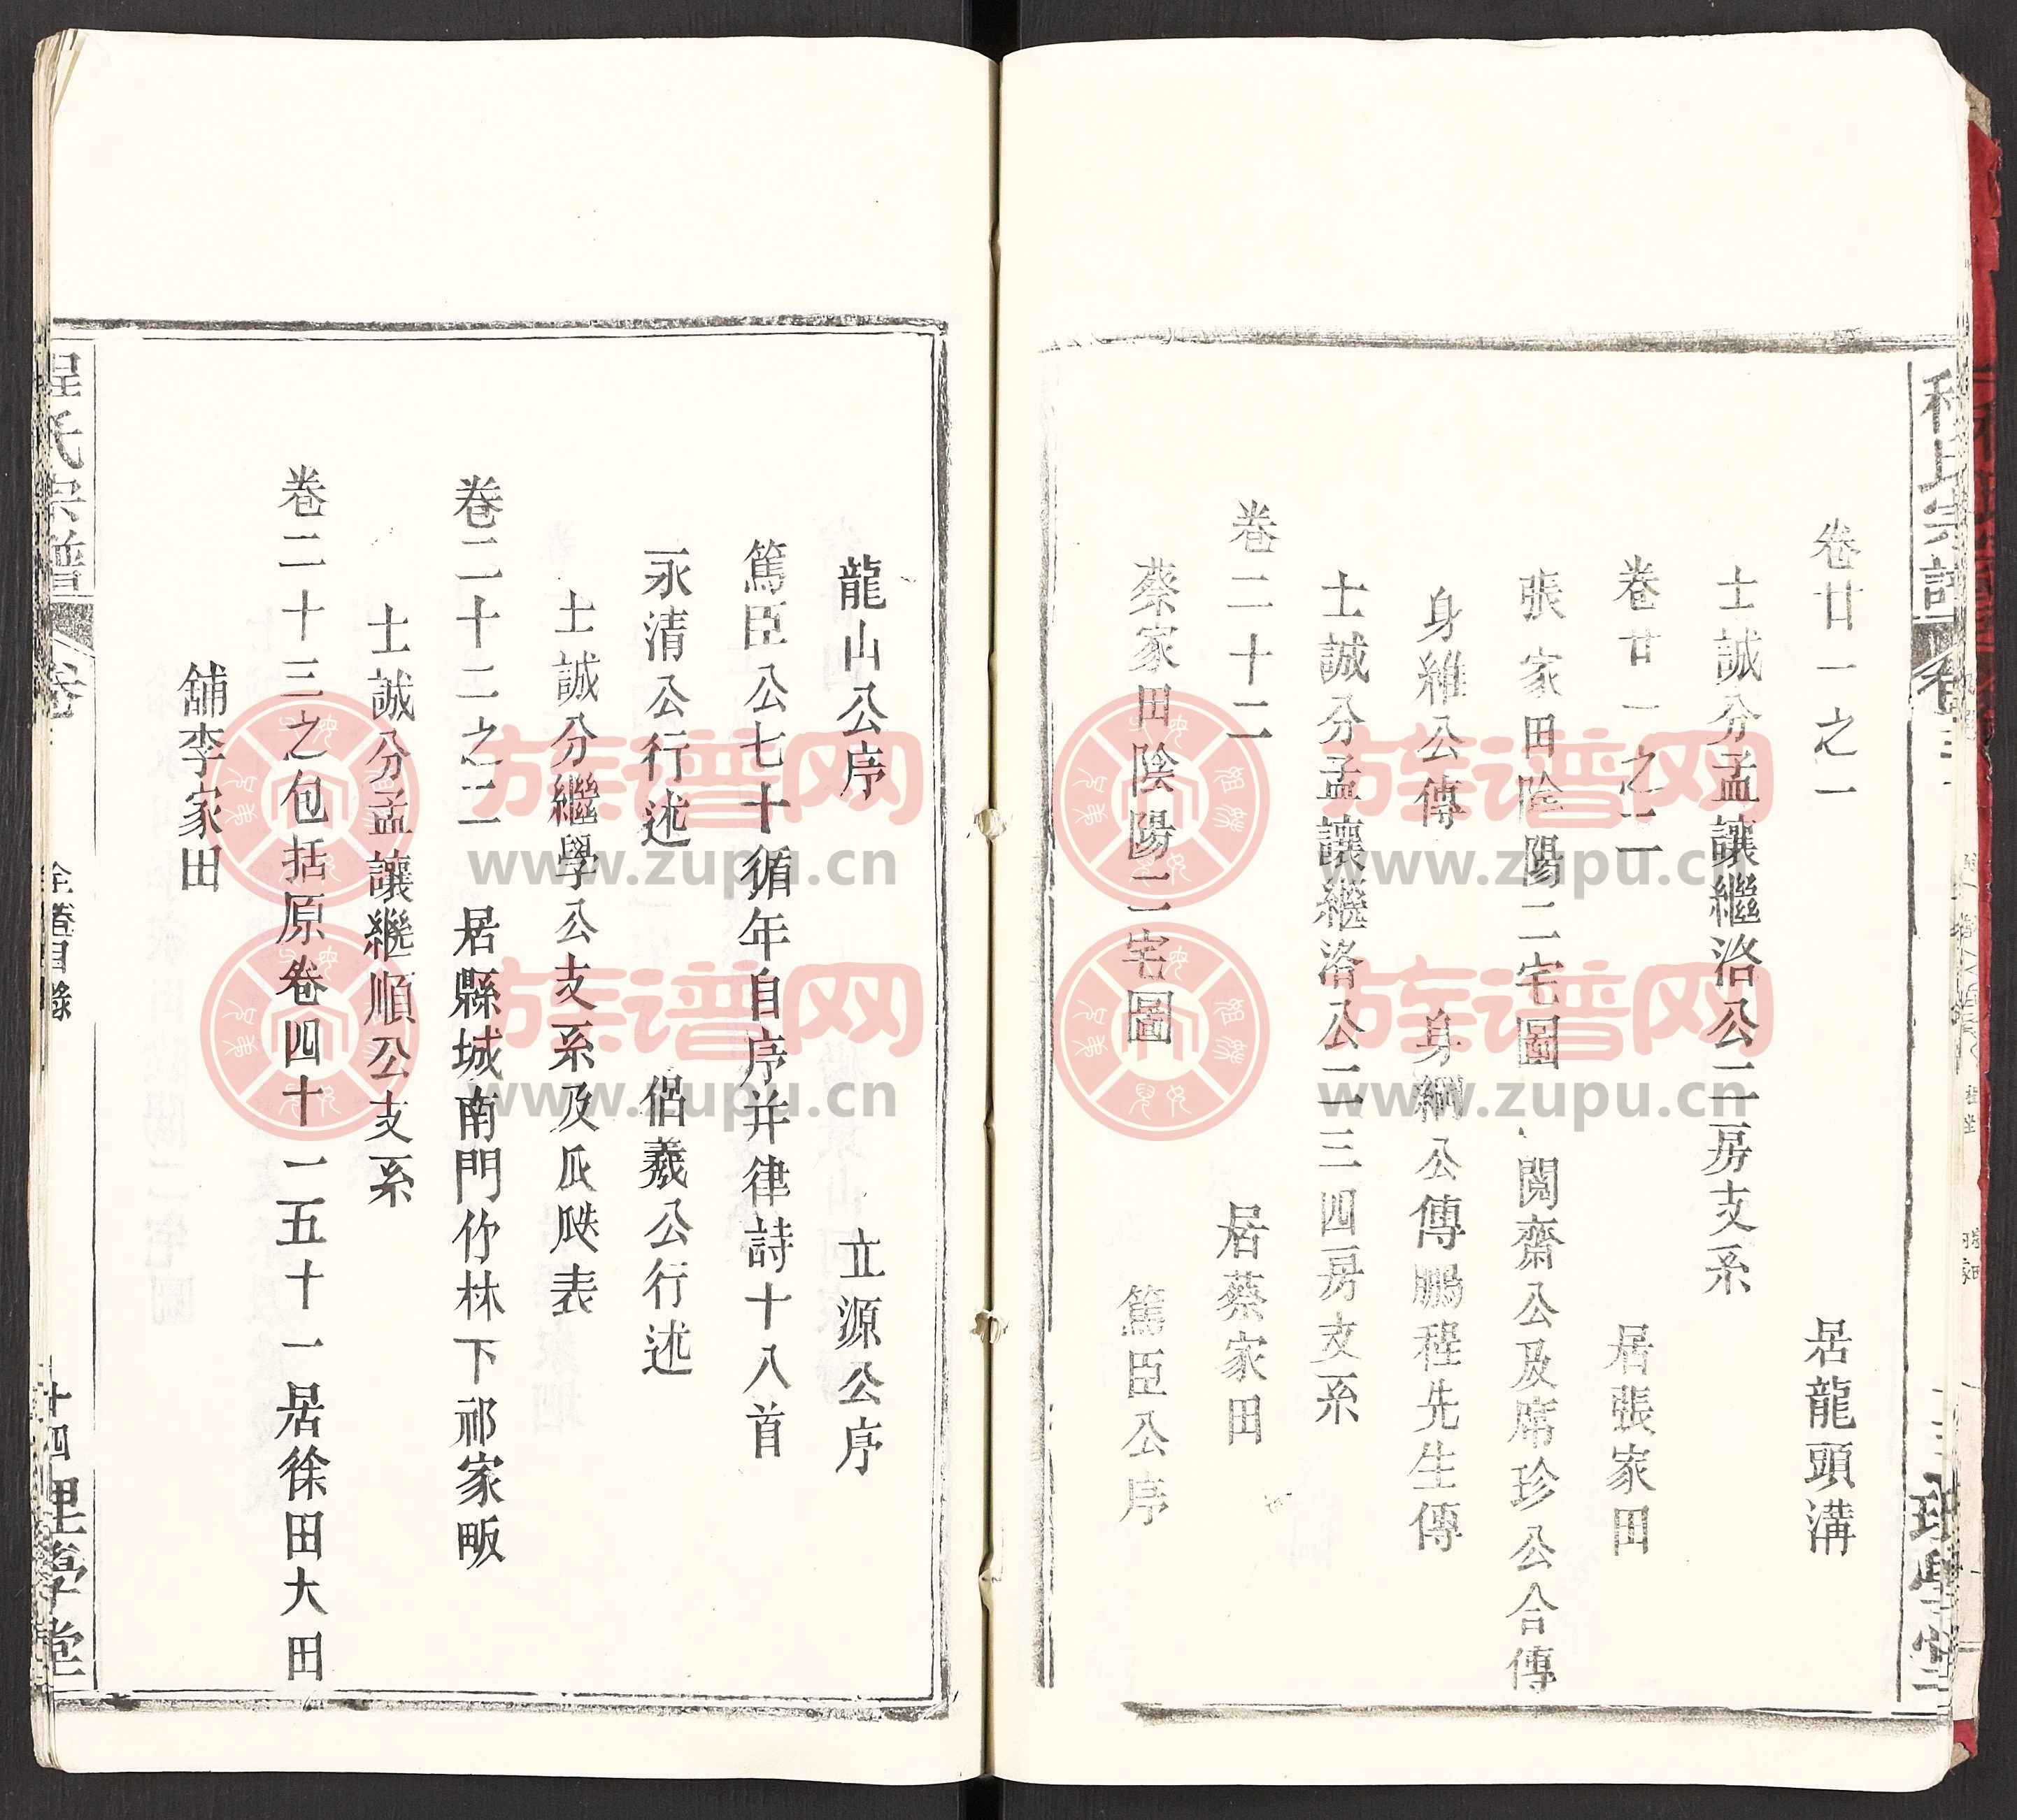 卷廿一之一　居龍頭溝
士誠分孟讓繼洛公二房支系
卷廿一之二　居張家田
張家田陰陽二宅圖　閱齋公及席珍公合傳
身維公傳　身綱公傳鵬程先生傳
士誠分孟讓繼洛公一二三四房支系
卷二十二　居蔡家田
蔡家田陰陽二宅圖　篤臣公序
龍山公序　立源公序
篤臣公七十循年自序并律詩十八首
永清公行述　侶羲公行述
士誠分繼學公支系及瓜瓞表
卷二十二之二　居縣城南門竹林下祁家畈
士誠分孟讓繼順公支系
卷二十三之包括原卷四十一五十一居徐田大田
舖李家田
程氏宗譜　卷　全譜目錄　十四　理學堂
族谱网
www.zupu.cn
族谱网
www.zupu.cn
族谱网
www.zupu.cn
族谱网
www.zupu.cn